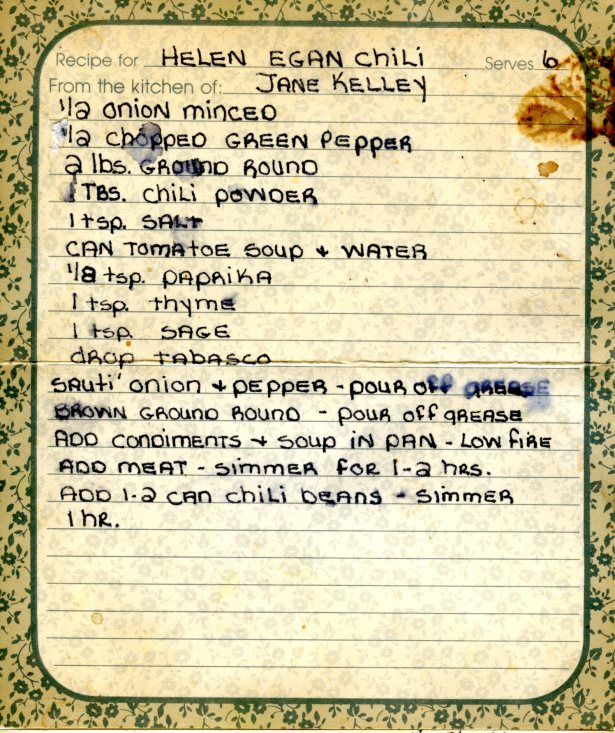 Recipe for HELEN EGAN Chili Serves 6
From the kitchen of: JANE KELLEY
1/2 onion minced
1/2 chopped GREEN PEPPER
2 lbs. GROUND ROUND
1 TBS. chili powder
1 tsp. SALT
CAN TOMATOE SOUP + WATER
1/8 tsp. PAPRIKA
1 tsp. thyme
1 tsp. SAGE
drop TABASCO
SAUTI' onion + PEPPER - POUR Off GREASE
BROWN GROUND ROUND - POUR off GREASE
ADD CONDIMENTS + SOUP IN PAN - LOW FIRE
ADD MEAT - SIMMER FOR 1-2 HRS.
ADD 1-2 CAN Chili BEANS - SIMMER
1 hR.